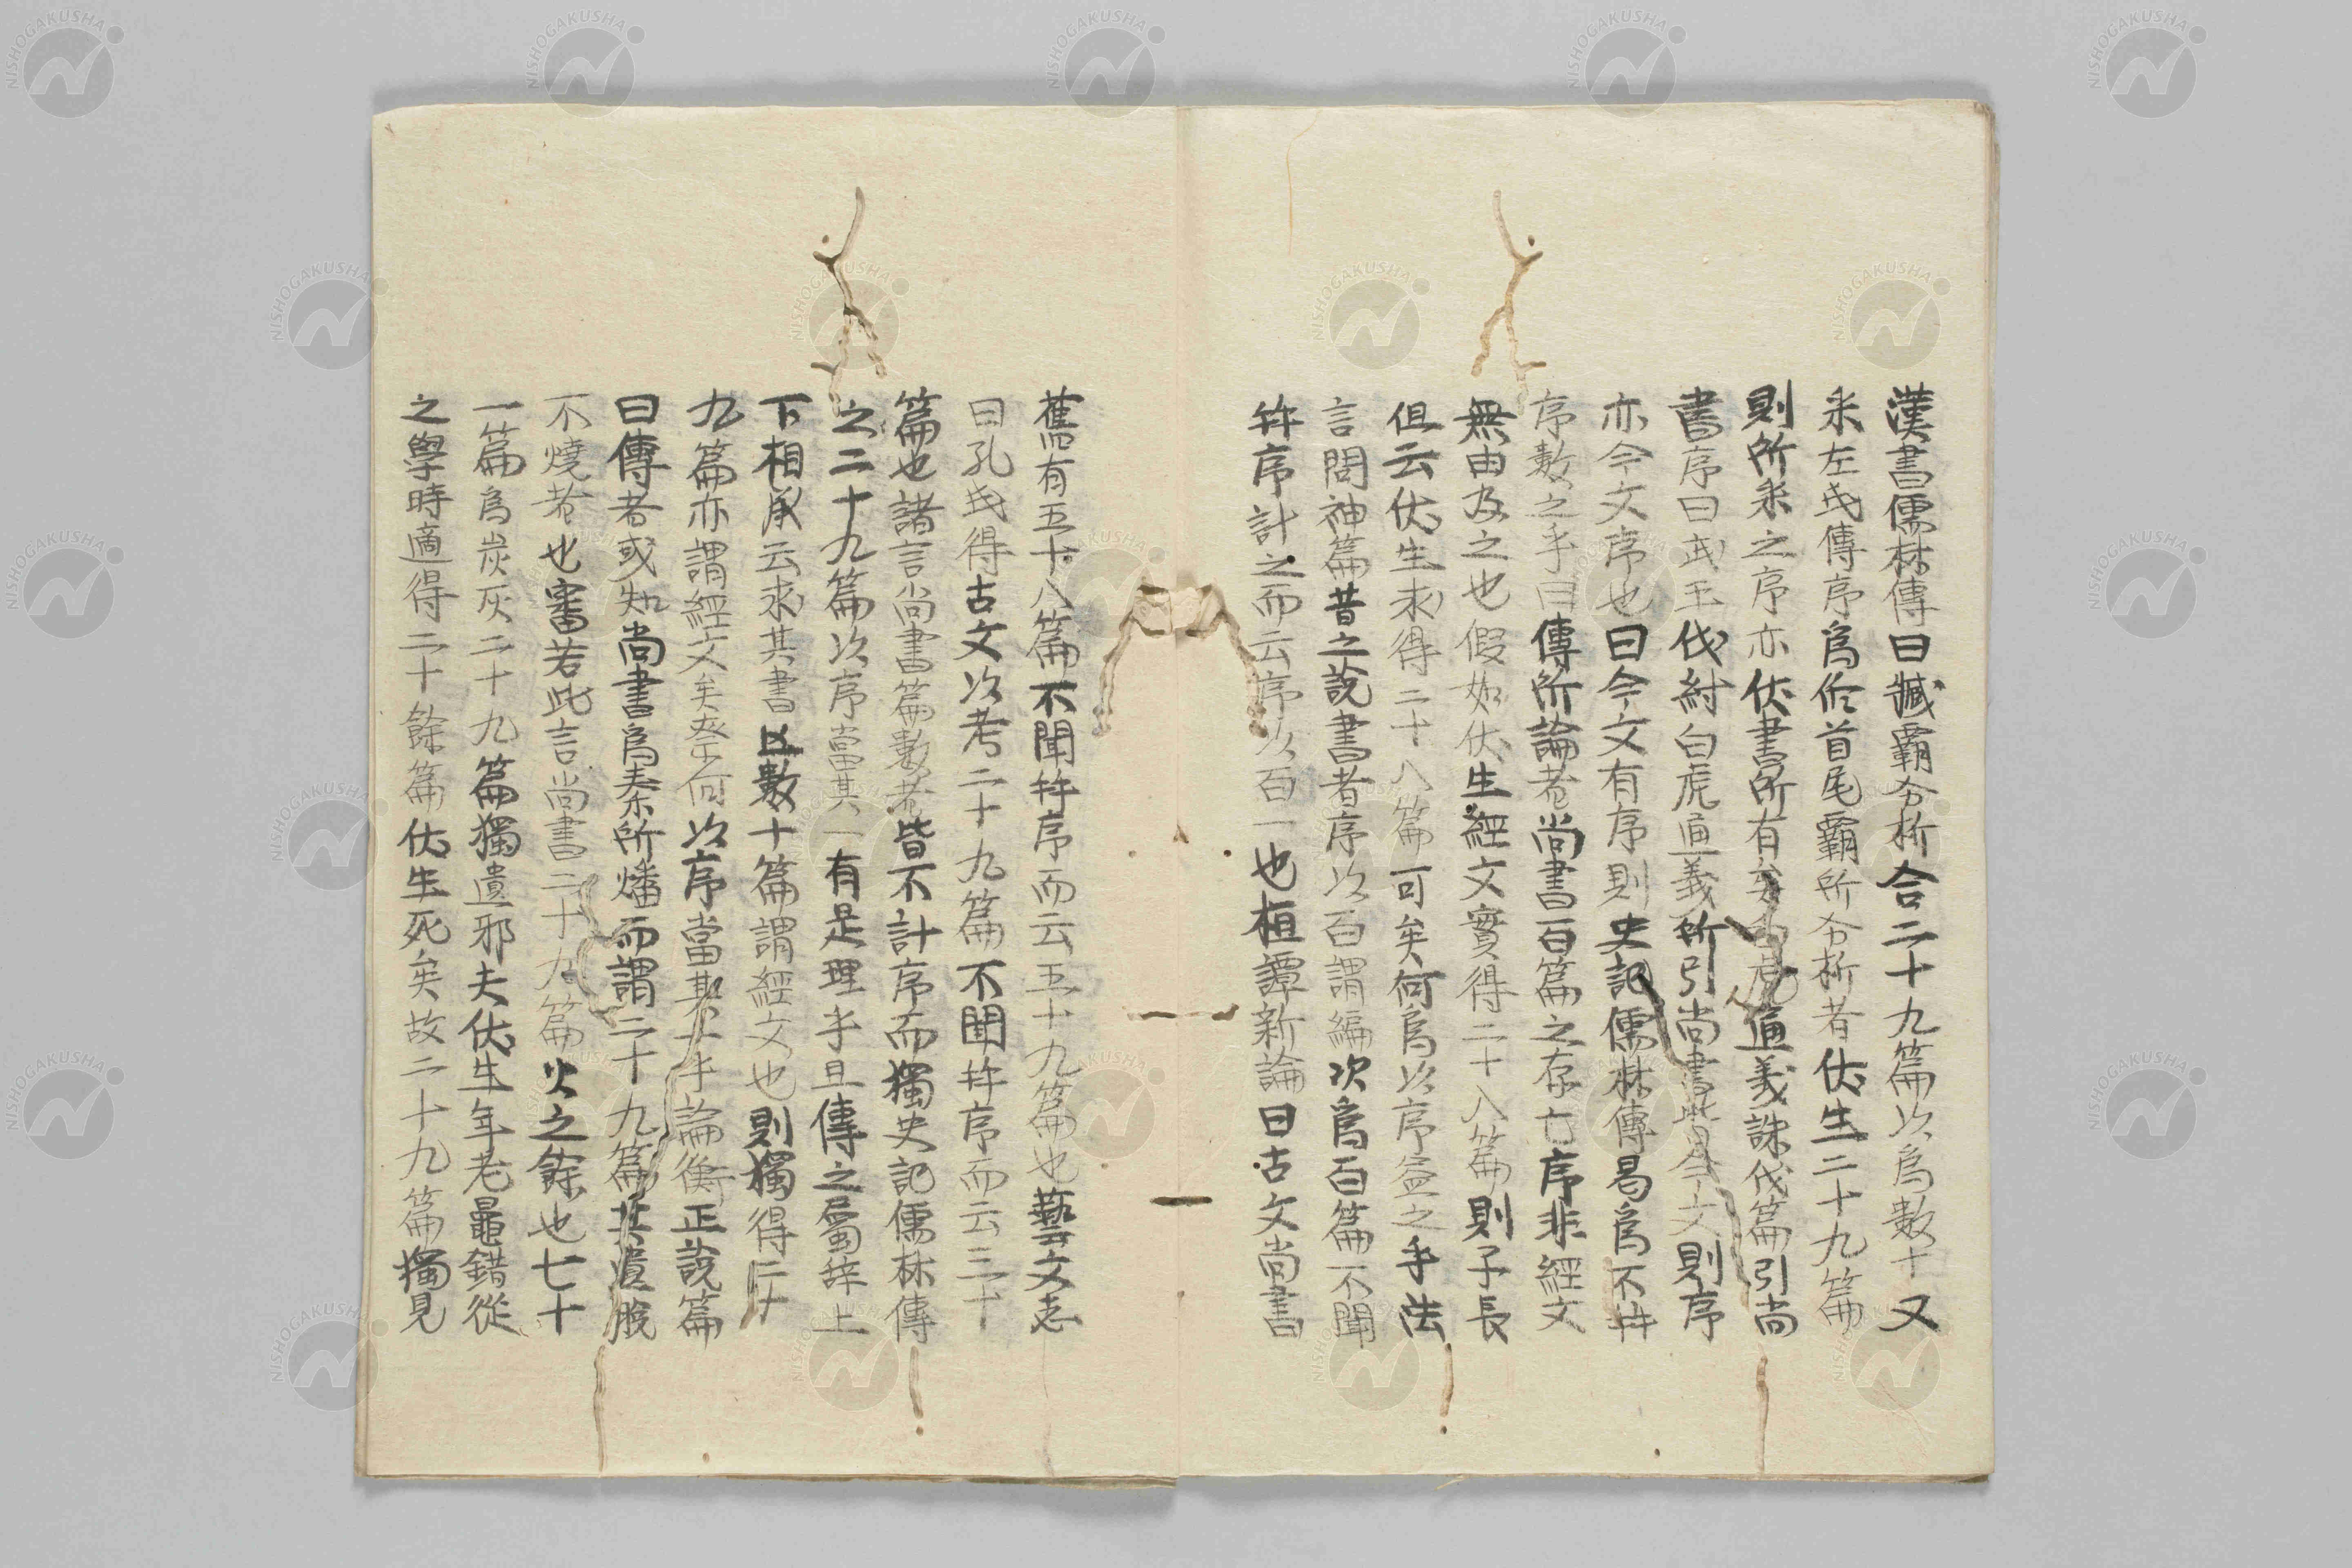 漢書儒林傳曰臧霸分析合二十九篇以爲數十又
采左氏傳序爲作首尾霸所分析者伏生二十九篇
則所采之序亦伏書所有矣白虎通義誅伐篇引尚
書序曰武王伐紂白虎通義所引尚書皆今文則序
亦今文序也曰今文有序則史記儒林傳曷爲不幷
序數之乎曰傳所論者尚書百篇之存亡序非經文
無由及之也假如伏生經文實得二十八篇則子長
但云伏生求得二十八篇可矣何爲以序益之乎法
言問神篇昔之說書者序以百謂編次爲百篇不聞
幷序計之而云序以百一也桓譚新論曰古文尚書
舊有五十八篇不聞幷序而云五十九篇也藝文志
曰孔氏得古文以考二十九篇不聞幷序而云三十
篇也諸言尚書篇數者皆不計序而獨史記儒林傳
之二十九篇以序當其一有是理乎且傳之屬辭上
下相承云求其書亡數十篇謂經文也則獨得二十
九篇亦謂經文矣奈何以序當其一乎論衡正說篇
曰傳者或知尚書爲秦所燔而謂二十九篇其遺脫
不燒者也審若此言尚書二十九篇火之餘也七十
一篇爲炭灰二十九篇獨遺邪夫伏生年老鼂錯從
之學時適得二十餘篇伏生死矣故二十九篇獨見